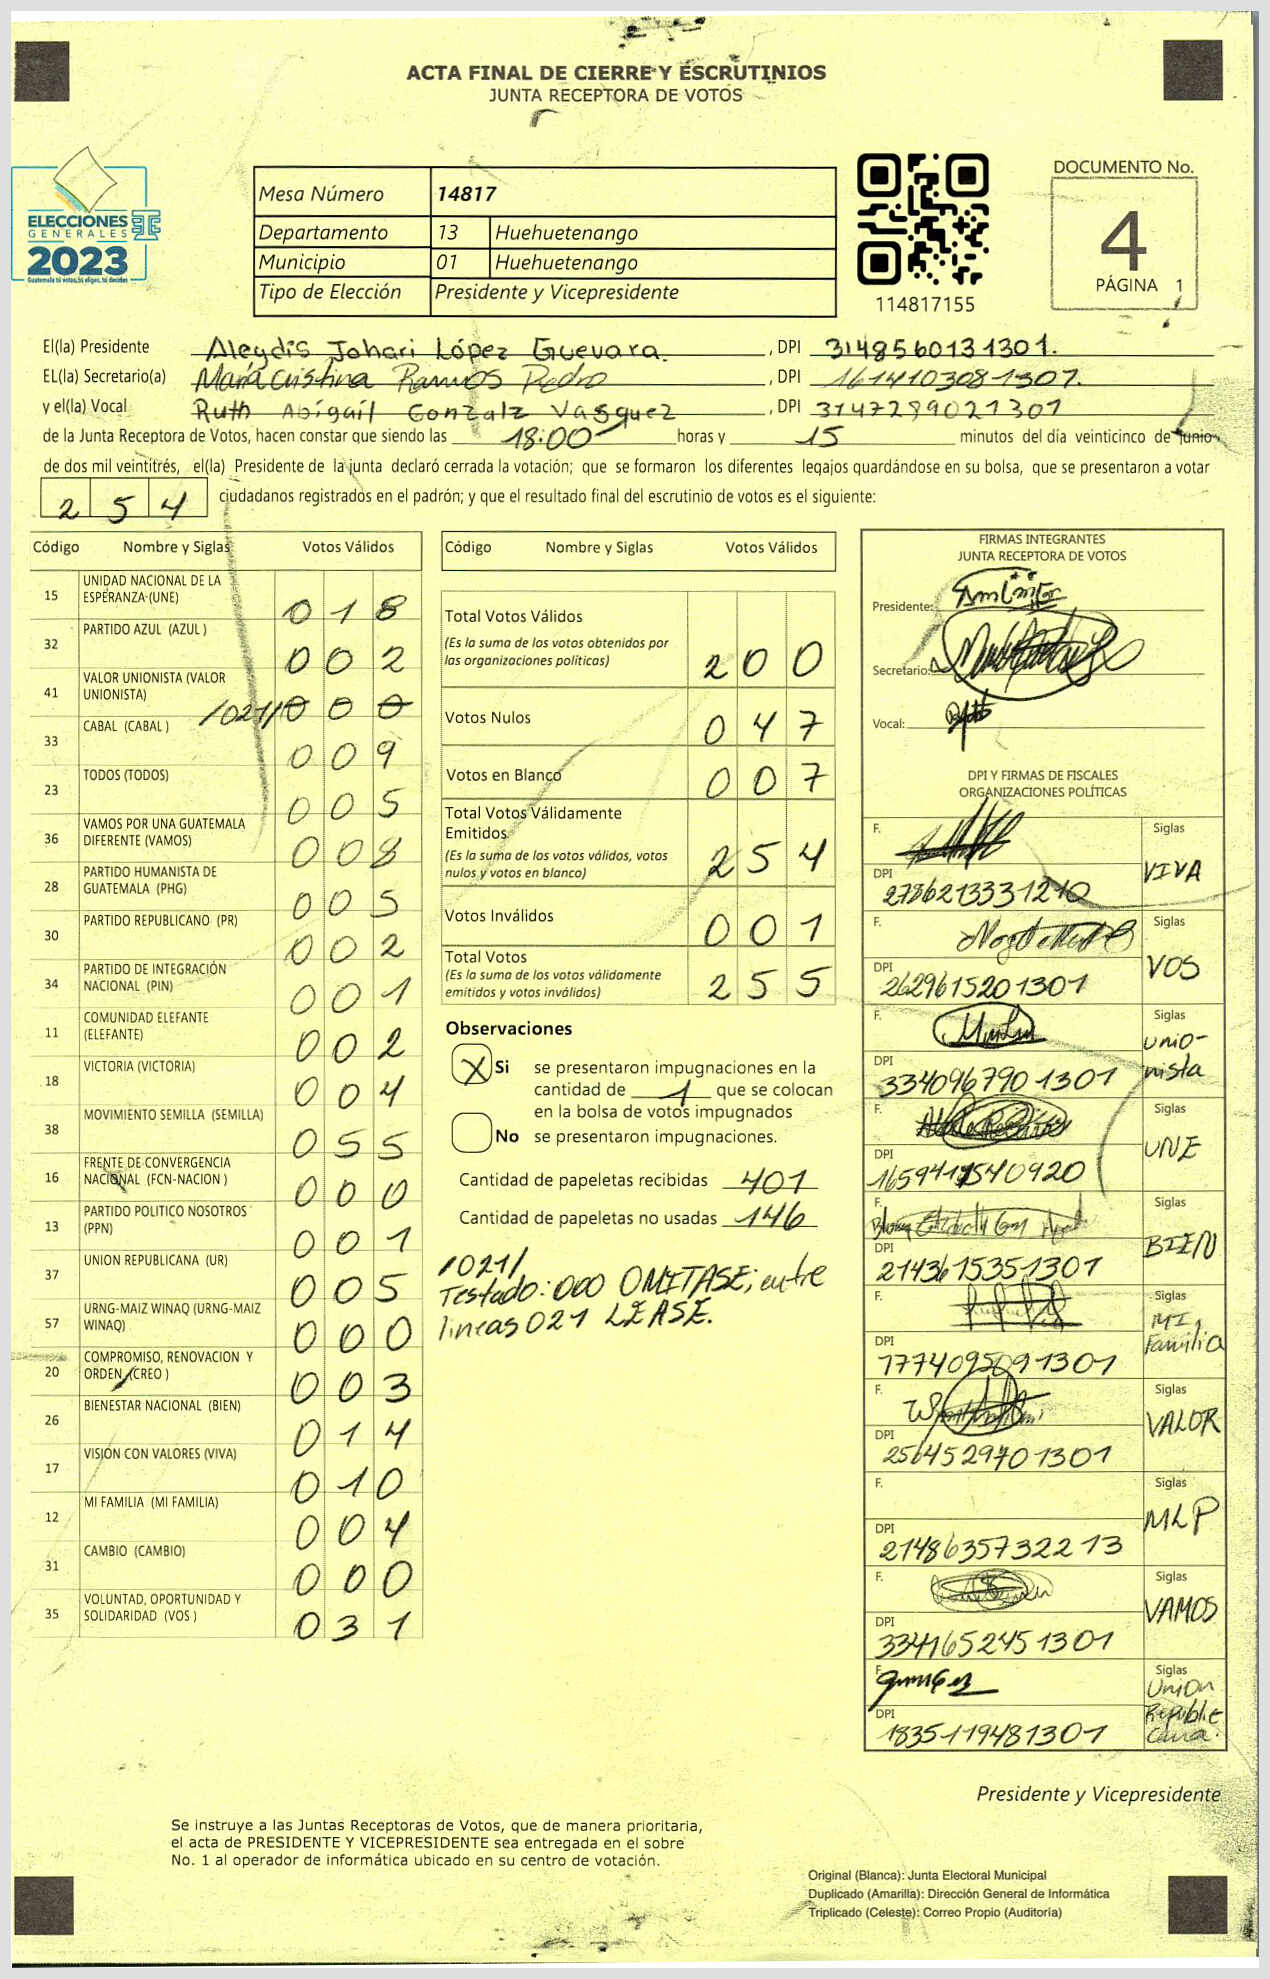 ACTA FINAL DE CIERRE Y ESCRUTINIOS
JUNTA RECEPTORA DE VOTOS
ELECCIONES
GENERALES
2023
Guatemala tú votas, tú eliges, tú decides
Mesa Número 14817
Departamento 13 Huehuetenango
Municipio 01 Huehuetenango
Tipo de Elección Presidente y Vicepresidente
114817155
DOCUMENTO No.
4
PÁGINA 1
El(la) Presidente Aleydis Johari López Guevara. , DPI 3148560131301.
EL(la) Secretario(a) María Cristina Ramos Pedro , DPI 1614103081307.
y el(la) Vocal Ruth Abigaíl Gonzalz Vasquez , DPI 3147289021301
de la Junta Receptora de Votos, hacen constar que siendo las 18:00 horas y 15 minutos del día veinticinco de junio
de dos mil veintitrés, el(la) Presidente de la junta declaró cerrada la votación; que se formaron los diferentes legajos guardándose en su bolsa, que se presentaron a votar
254 ciudadanos registrados en el padrón; y que el resultado final del escrutinio de votos es el siguiente:
Código Nombre y Siglas Votos Válidos
15 UNIDAD NACIONAL DE LA ESPERANZA (UNE) 018
32 PARTIDO AZUL (AZUL ) 002
41 VALOR UNIONISTA (VALOR UNIONISTA) /021/ 000
33 CABAL (CABAL ) 009
23 TODOS (TODOS) 005
36 VAMOS POR UNA GUATEMALA DIFERENTE (VAMOS) 008
28 PARTIDO HUMANISTA DE GUATEMALA (PHG) 005
30 PARTIDO REPUBLICANO (PR) 002
34 PARTIDO DE INTEGRACIÓN NACIONAL (PIN) 001
11 COMUNIDAD ELEFANTE (ELEFANTE) 002
18 VICTORIA (VICTORIA) 004
38 MOVIMIENTO SEMILLA (SEMILLA) 055
16 FRENTE DE CONVERGENCIA NACIONAL (FCN-NACION ) 000
13 PARTIDO POLITICO NOSOTROS (PPN) 001
37 UNION REPUBLICANA (UR) 005
57 URNG-MAIZ WINAQ (URNG-MAIZ WINAQ) 000
20 COMPROMISO, RENOVACION Y ORDEN (CREO ) 003
26 BIENESTAR NACIONAL (BIEN) 014
17 VISIÓN CON VALORES (VIVA) 010
12 MI FAMILIA (MI FAMILIA) 004
31 CAMBIO (CAMBIO) 000
35 VOLUNTAD, OPORTUNIDAD Y SOLIDARIDAD (VOS ) 031
Código Nombre y Siglas Votos Válidos
Total Votos Válidos 200
(Es la suma de los votos obtenidos por
las organizaciones políticas)
Votos Nulos 047
Votos en Blanco 007
Total Votos Válidamente
Emitidos 254
(Es la suma de los votos válidos, votos
nulos y votos en blanco)
Votos Inválidos 001
Total Votos 255
(Es la suma de los votos válidamente
emitidos y votos inválidos)
Observaciones
X Si se presentaron impugnaciones en la
cantidad de 1 que se colocan
en la bolsa de votos impugnados
No se presentaron impugnaciones.
Cantidad de papeletas recibidas 401
Cantidad de papeletas no usadas 146
/021/
Testado: 000 OMITASE; entre
lineas 021 LEASE.
FIRMAS INTEGRANTES
JUNTA RECEPTORA DE VOTOS
Presidente:
Secretario:
Vocal:
DPI Y FIRMAS DE FISCALES
ORGANIZACIONES POLÍTICAS
F. Siglas
DPI 2786213331210 VIVA
F. Siglas
DPI 2629615201301 VOS
F. Siglas
DPI 3340967901301 Unio-
nista
F. Siglas
DPI UNE
F. Siglas
DPI 2143615351301 BIEN
F. Siglas
DPI 1774095091301 MI Familia
F. Siglas
DPI 2564529701301 VALOR
F. Siglas
DPI 2148635732213 MLP
F. Siglas
DPI 3341652451301 VAMOS
F. Siglas
DPI 1835119481301 Union
Republi
cana.
Presidente y Vicepresidente
Se instruye a las Juntas Receptoras de Votos, que de manera prioritaria,
el acta de PRESIDENTE Y VICEPRESIDENTE sea entregada en el sobre
No. 1 al operador de informática ubicado en su centro de votación.
Original (Blanca): Junta Electoral Municipal
Duplicado (Amarilla): Dirección General de Informática
Triplicado (Celeste): Correo Propio (Auditoría)